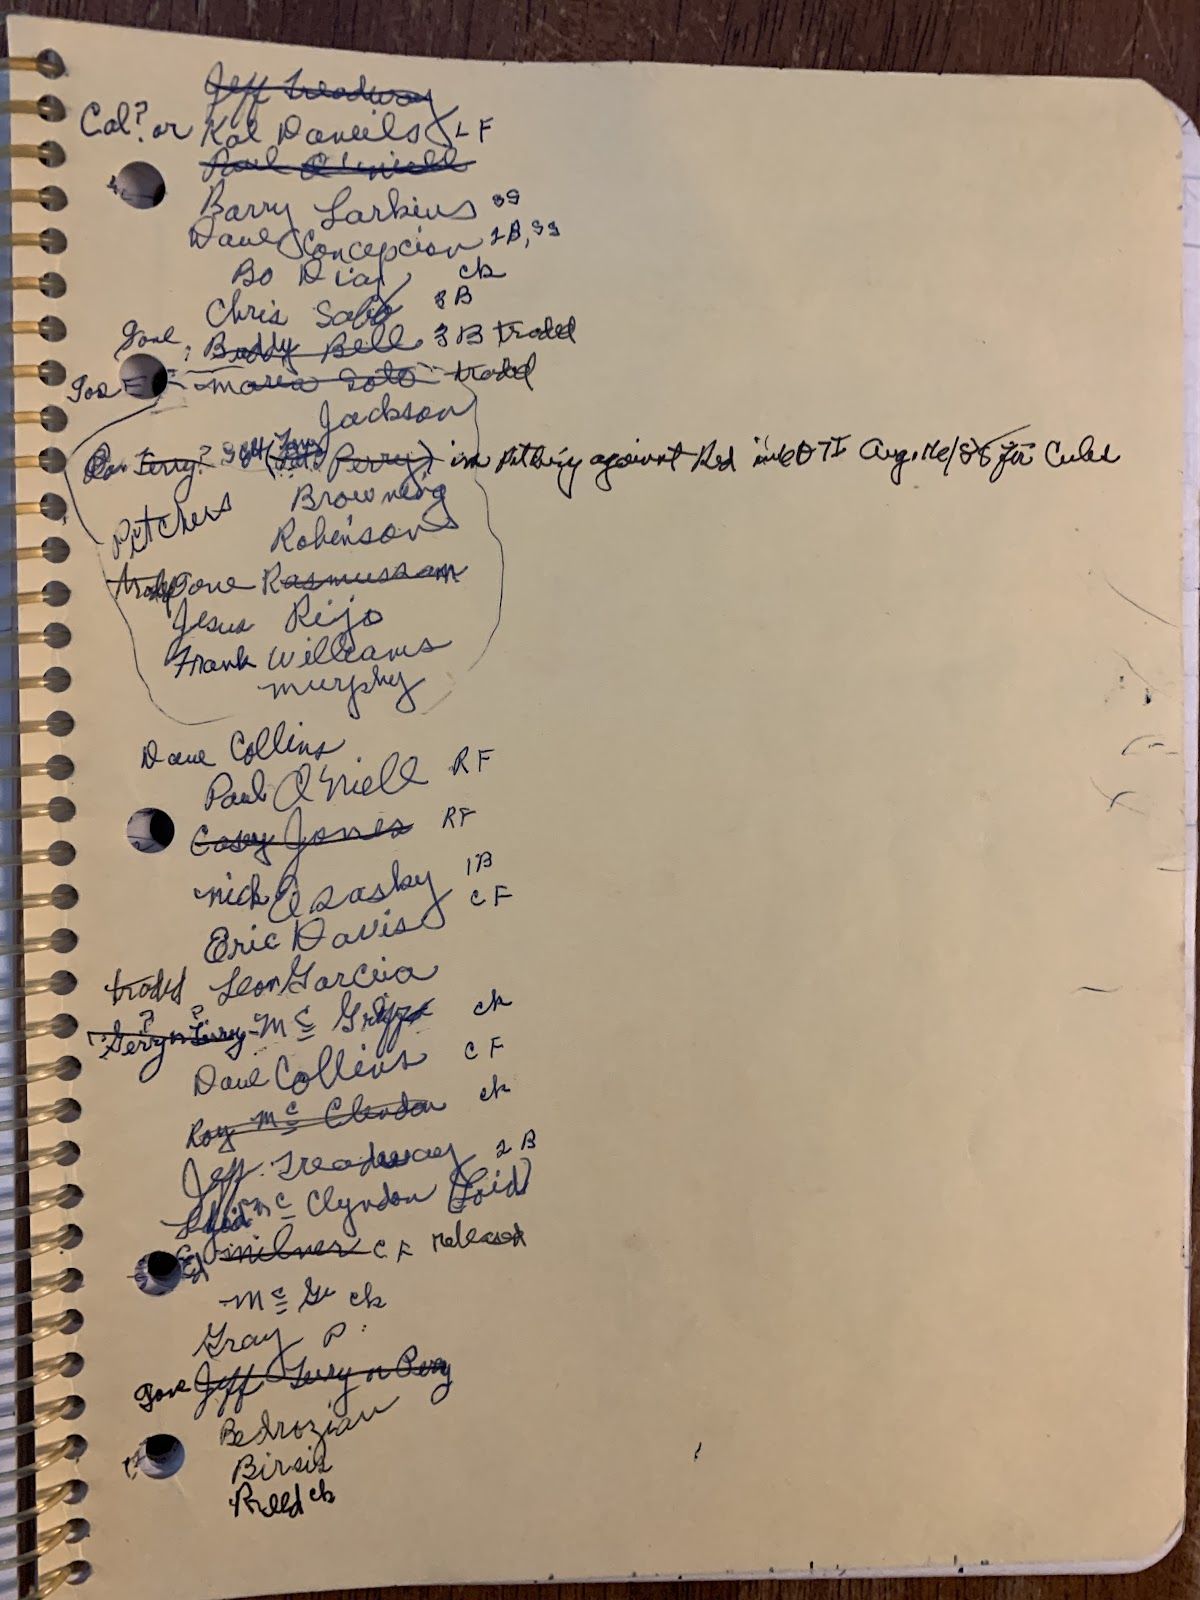 Jeff Treadway
Cal? or Kal Daneils LF
Paul O'niell
Barry Larkins SS
Dave Concepcion 2B, SS
Bo Diaz ck
Chris Sabo 3B
Gone, Buddy Bell 3B traded
Gone Mario Soto traded
Jackson
Perry) is pitching against Red Aug. for Cubs
Pitchers Browning
Robinson
Gone Rasmussam
Jesus Rijo
Frank Williams
Murphy
Dave Collins
Paul O'Niell RF
Casey Jones RF
Nick Esasky 1B
Eric Davis CF
traded Leon Garcia
Gerry or Terry Mc Griff ck
Dave Collins CF
Roy Mc Clendon ck
Jeff Treadway 2B
Mc Clyndon (Loid)
Ed Milner C.F released
Mc Gr ck
Gray P.
Gone Jeff Terry or Perry
Bedrozian
Birsik
Reed ck